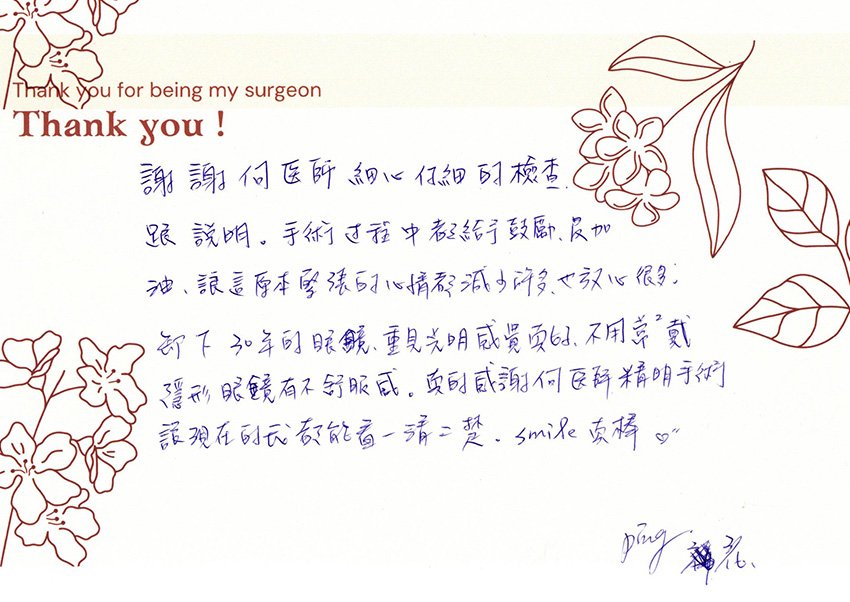 Thank you for being my surgeon
Thank you !
謝謝何医師 細心仔細的檢查、
跟 說明。手術过程中都給予鼓勵、及加
油、讓這原本緊張的心情都減少許多、也放心很多。
卸下30年的眼鏡、重見光明感覺真好、不用常²戴
隱形眼鏡有不舒服感。真的感謝何医師精明手術
讓現在的我都能看一清二楚。smile 真棒
ping.